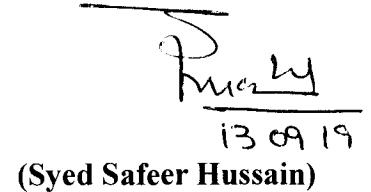 13 09 19
(Syed Safeer Hussain)